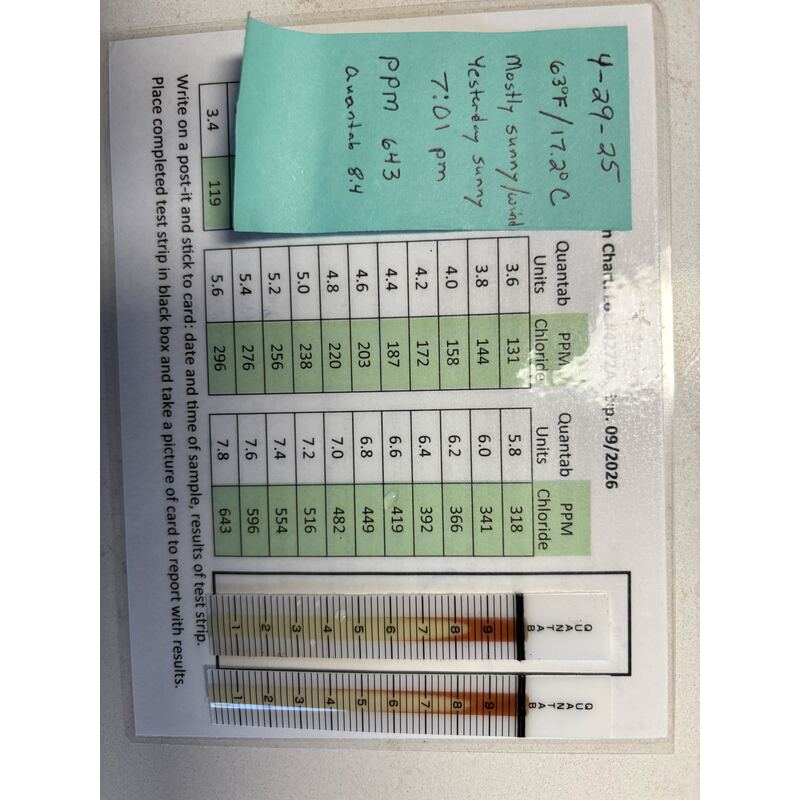 4-29-25
63°F/17.2°C
Mostly sunny/wind
Yesterday sunny
7:01 pm
PPM 643
Quantab 8.4
n Chart: Exp. 09/2026
3.4 119
Quantab Units PPM Chloride
3.6 131
3.8 144
4.0 158
4.2 172
4.4 187
4.6 203
4.8 220
5.0 238
5.2 256
5.4 276
5.6 296
Quantab Units PPM Chloride
5.8 318
6.0 341
6.2 366
6.4 392
6.6 419
6.8 449
7.0 482
7.2 516
7.4 554
7.6 596
7.8 643
QUANTAB
9
8
7
6
5
4
3
2
1
QUANTAB
9
8
7
6
5
4
3
2
1
Write on a post-it and stick to card: date and time of sample, results of test strip.
Place completed test strip in black box and take a picture of card to report with results.